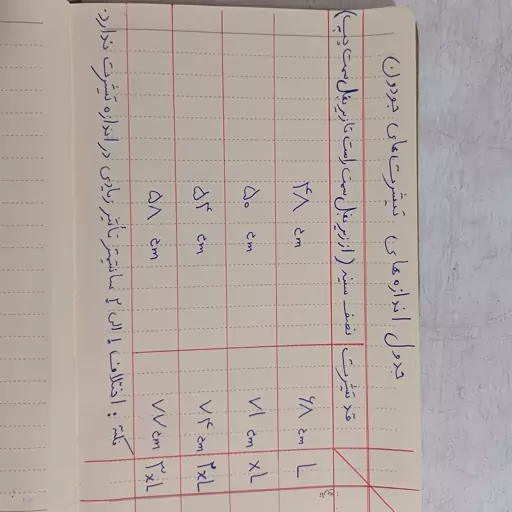 جدول اندازه های تیشرت های جودون
قد تیشرت | نصف سینه (از زیر بغل سمت راست تا زیر بغل سمت چپ)
L | ۶۸ cm | ۴۸ cm
XL | ۷۱ cm | ۵۰ cm
۲XL | ۷۴ cm | ۵۴ cm
۳XL | ۷۷ cm | ۵۸ cm
نکته : اختلاف ۱ الی ۲ سانتیمتر تأثیر زیادی در اندازه تیشرت ندارد.